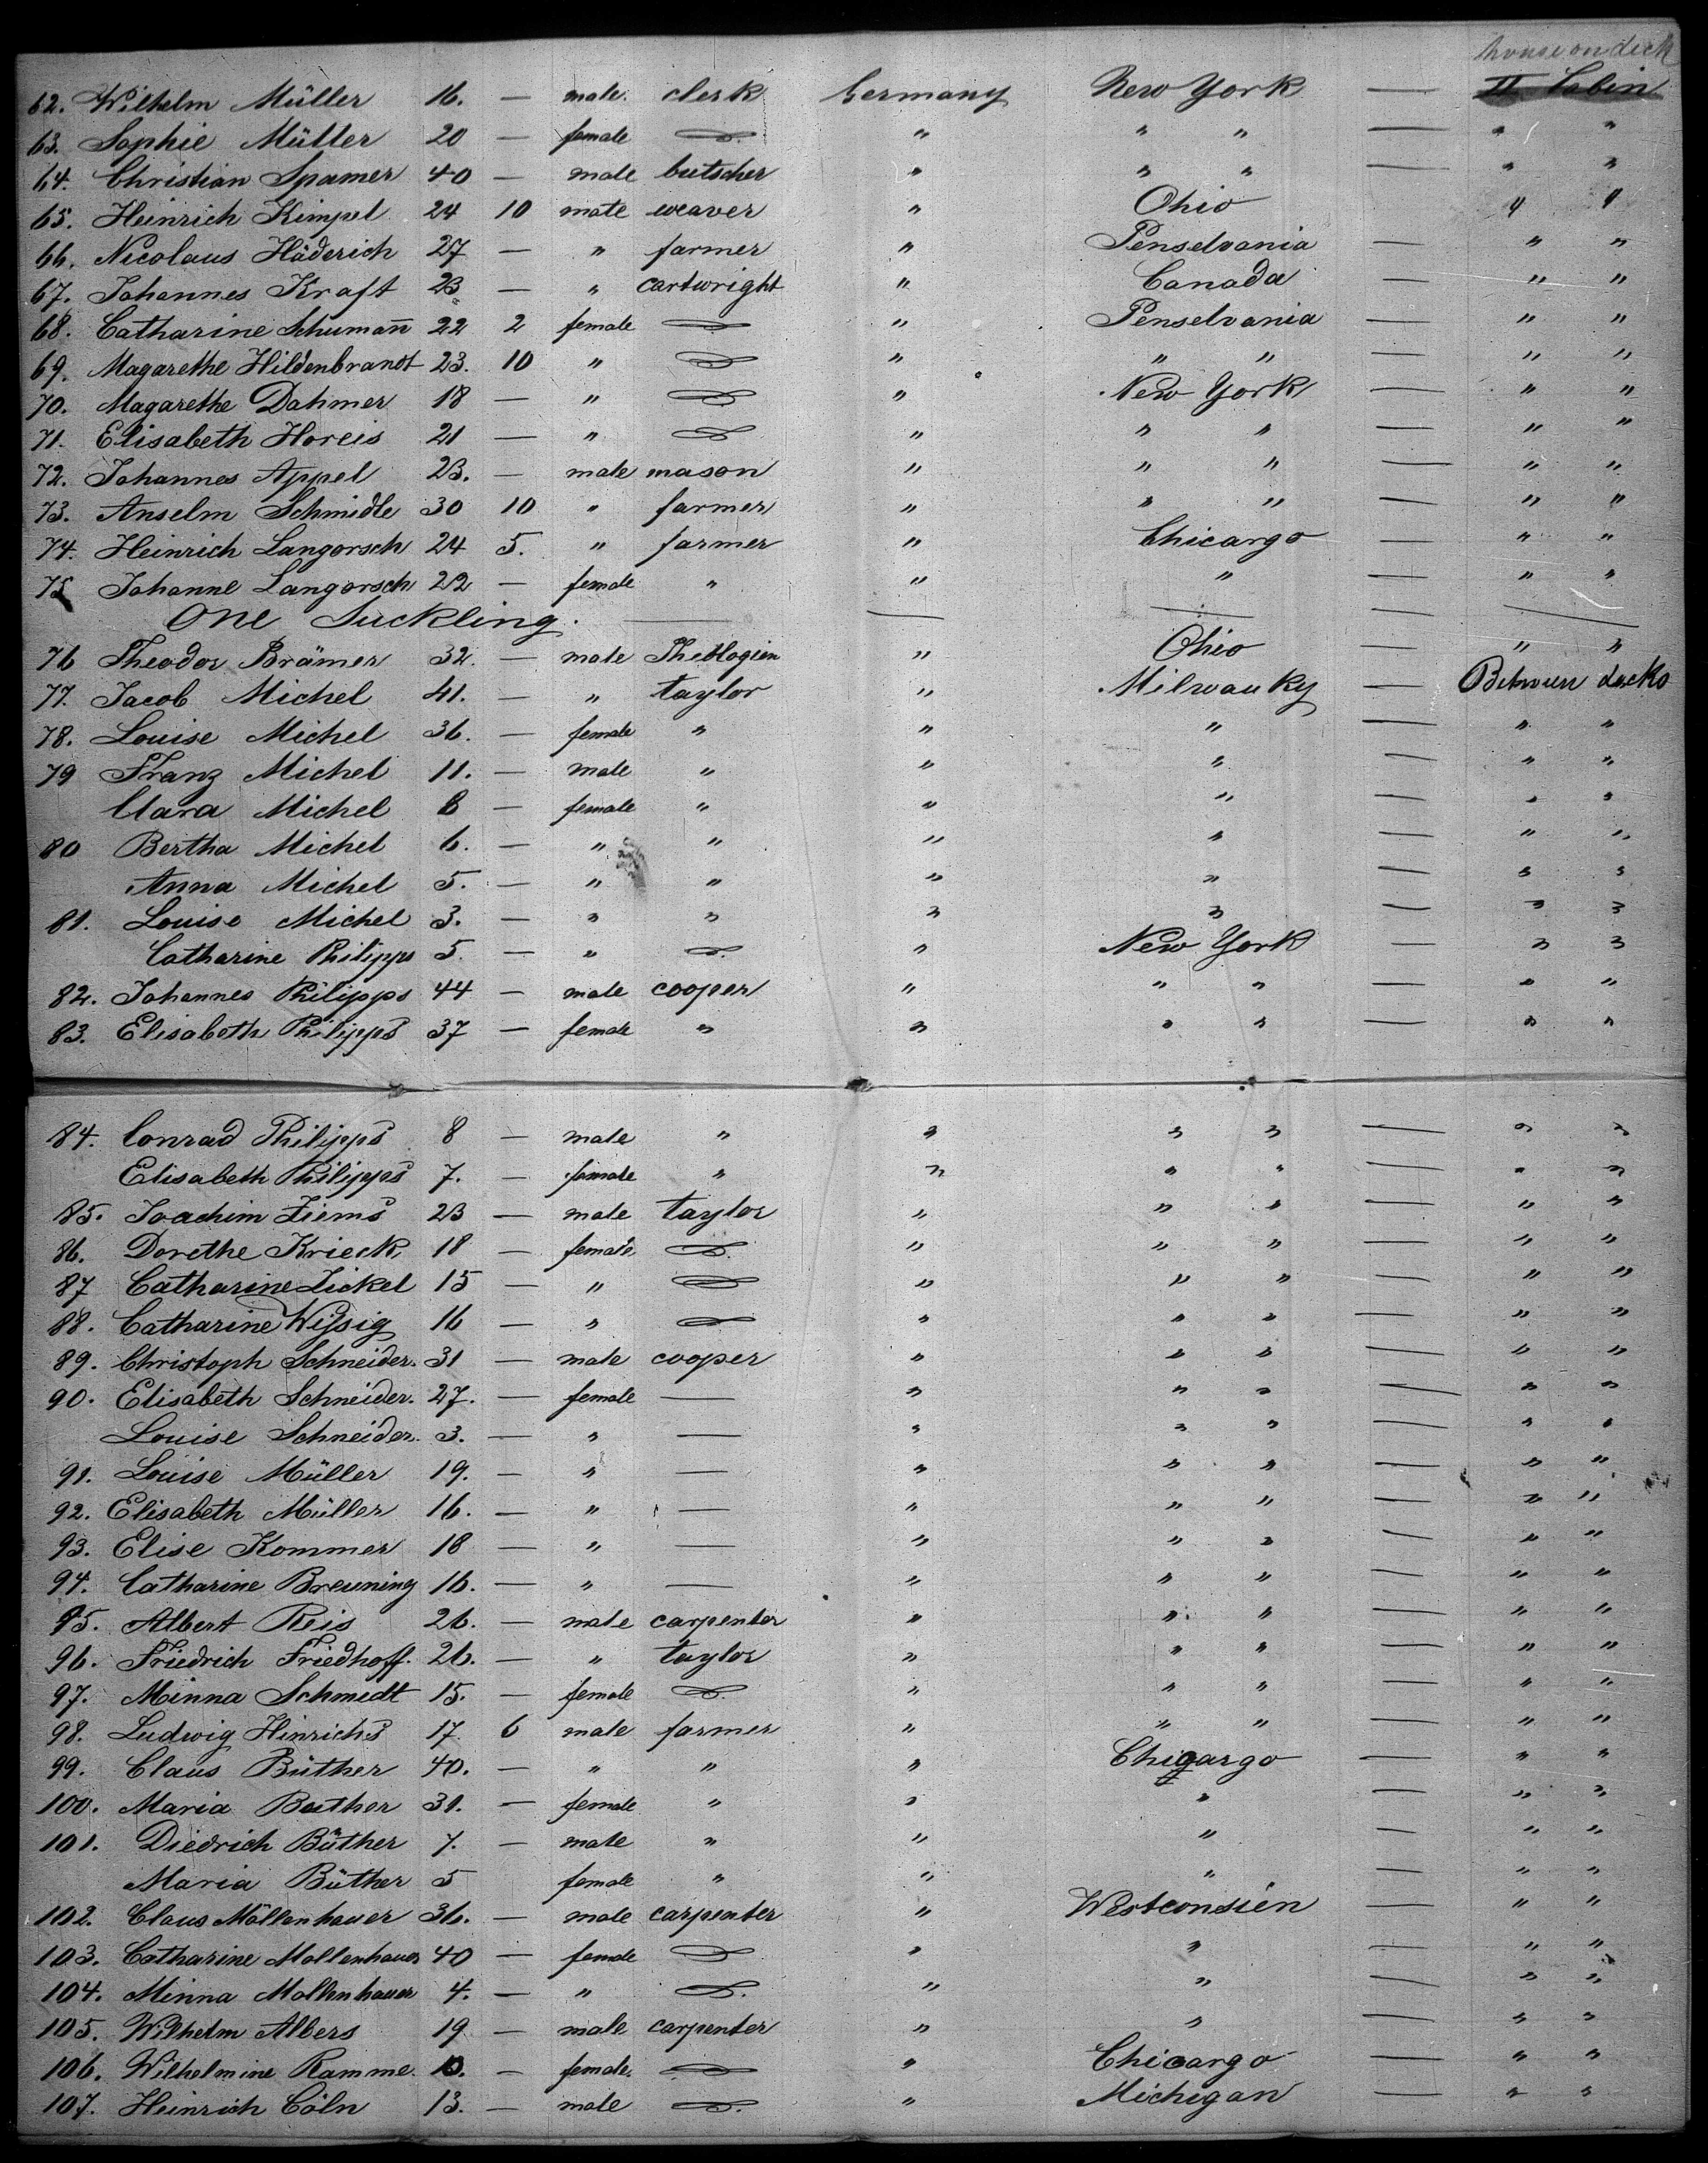 house on deck
62. Wilhelm Müller 16. — male. clerk Germany New York — II Cabin
63. Sophie Müller 20 — female — " " " — " "
64. Christian Spamer 40 — male butscher " " " — " "
65. Heinrich Kimpel 24 10 male weaver " Ohio " "
66. Nicolaus Häderich 27 — " farmer " Penselvania — " "
67. Johannes Kraft 23 — " cartwright " Canada — " "
68. Catharine Schumañ 22 2 female — " Penselvania — " "
69. Magarethe Hildenbrandt 23. 10 " — " " " — " "
70. Magarethe Dahmer 18 — " — " New York — " "
71. Elisabeth Horeis 21 — " — " " " — " "
72. Johannes Appel 23. — male mason " " " — " "
73. Anselm Schmidle 30 10 " farmer " " " — " "
74. Heinrich Langorsch 24 5. " farmer " Chicargo — " "
75 Johanne Langorsch 22 — female " " " — " "
One Suckling. — — — — —
76 Theodor Brämer 32. — male Theologien " Ohio — " "
77. Jacob Michel 41. — " taylor " Milwauky — Between decks
78. Louise Michel 36. — female " " " — " "
79 Franz Michel 11. — male " " " — " "
Clara Michel 8 — female " " " — " "
80 Bertha Michel 6. — " " " " — " "
Anna Michel 5. — " " " " — " "
81. Louise Michel 3. — " " " " — " "
Catharine Philipps 5. — " — " New York — " "
82. Johannes Philipps 44 — male cooper " " " — " "
83. Elisabeth Philipps 37 — female " " " " — " "
84. Conrad Philipps 8 — male " " " " — " "
Elisabeth Philipps 7. — female " " " " — " "
85. Joachim Ziems 23 — male taylor " " " — " "
86. Dorethe Krieck 18 — female — " " " — " "
87 Catharine Zickel 15 — " — " " " — " "
88. Catharine Wißsig 16 — " — " " " — " "
89. Christoph Schneider. 31 — male cooper " " " — " "
90. Elisabeth Schneider. 27. — female — " " " — " "
Louise Schneider. 3. — " — " " " — " "
91. Louise Müller 19. — " — " " " — " "
92. Elisabeth Müller 16. — " — " " " — " "
93. Elise Kommer 18 — " — " " " — " "
94. Catharine Breuning 16. — " — " " " — " "
95. Albert Reis 26. — male carpenter " " " — " "
96. Friedrich Friedhoff. 26. — " taylor " " " — " "
97. Minna Schmedt 15. — female — " " " — " "
98. Ludwig Hinrichs 17. 6 male farmer " " " — " "
99. Claus Büther 40. — " " " Chicargo — " "
100. Maria Buther 31. — female " " " — " "
101. Diedrich Büther 7. — male " " " — " "
Maria Büther 5 female " " " — " "
102. Claus Möllenhauer 36. — male carpenter " Westconsien — " "
103. Catharine Mollenhauer 40 — female — " " — " "
104. Minna Mollenhauer 4. — " — " " — " "
105. Wilhelm Albers 19 — male carpenter " " — " "
106. Wilhelmine Ramme. 10. — female. — " Chicargo — " "
107. Heinrich Cöln 13. — male — " Michigan — " "